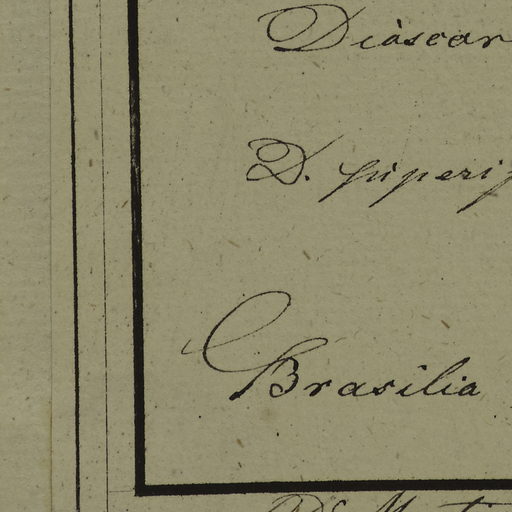 Diàscor
D. piperi
Brasilia